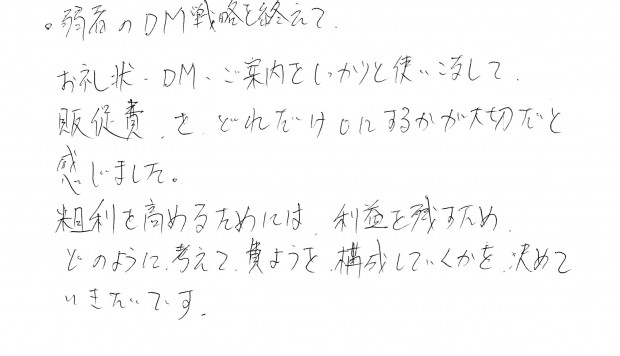 。弱者のDM戦略を終えて.
お礼状・DM・ご案内をしっかりと使いこなして.
販促費.を.どれだけ0にするかが大切だと
感じました。
粗利を高めるためには.利益を残すため.
どのように.考えて.費ようを.構成していくかを.決めて
いきたいです.